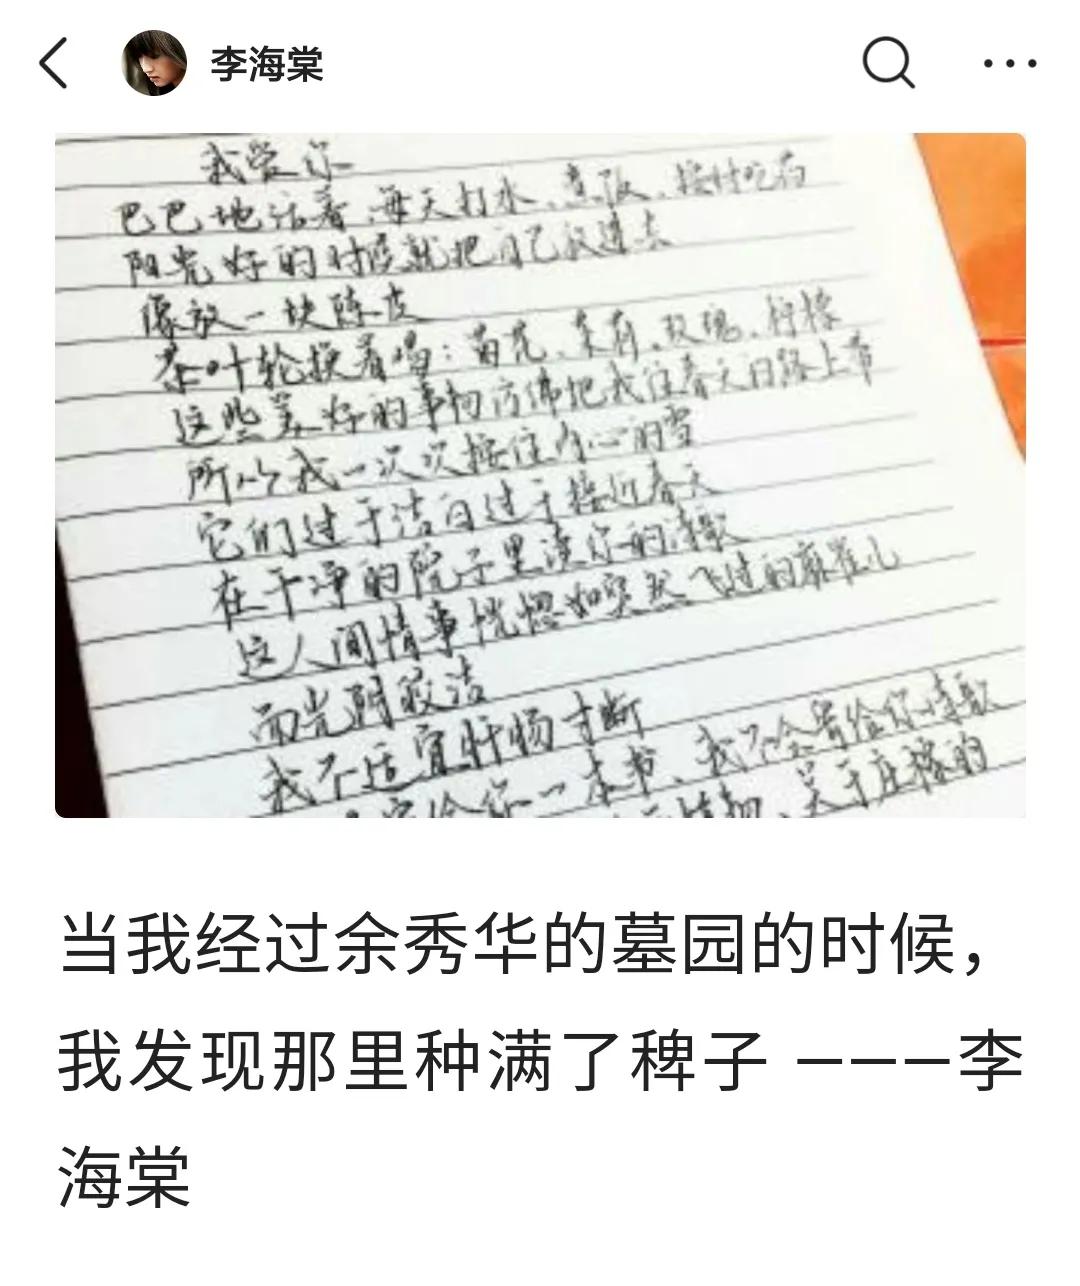 李海棠
我爱你
巴巴地活着,每天打水、煮饭、按时吃药
阳光好的时候就把自己放进去
像放一块陈皮
茶叶轮换着喝:菊花、茉莉、玫瑰、柠檬
这些美好的事物仿佛把我往春天的路上带
所以我一次次按住内心的雪
它们过于洁白过于接近春天
在干净的院子里读你的诗歌
这人间情事恍惚如突然飞过的麻雀儿
而光阴皎洁
我不适宜肝肠寸断
给你一本书、我不会寄给你诗歌
关于庄稼的
当我经过余秀华的墓园的时候,
我发现那里种满了稗子 ———李
海棠